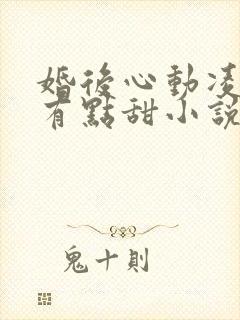 婚後心動凌
有點甜小說
鬼十則